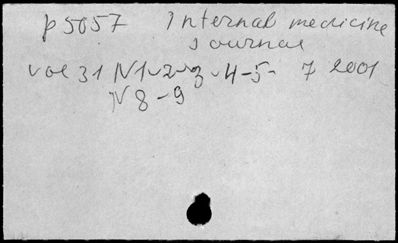 p5057 Internal medicine
Journal
vol 31 N1-2-3-4-5- 7 2001
N8-9